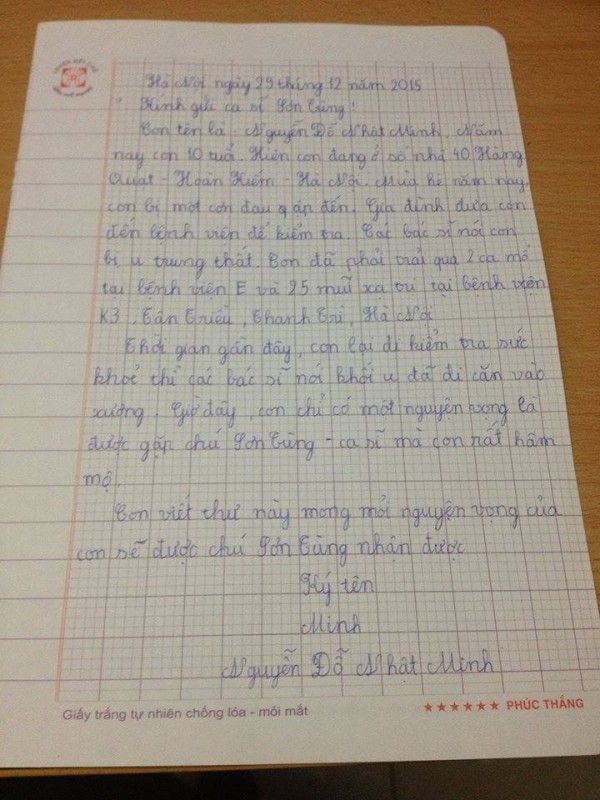 Hà Nội ngày 29 tháng 12 năm 2015
Kính gửi ca sĩ Sơn Tùng!
Con tên là: Nguyễn Đỗ Nhật Minh. Năm
nay con 10 tuổi. Hiện con đang ở số nhà 40 Hàng
Quạt - Hoàn Kiếm - Hà Nội. Mùa hè năm nay,
con bị một cơn đau ập đến. Gia đình đưa con
đến bệnh viện để kiểm tra. Các bác sĩ nói con
bị u trung thất. Con đã phải trải qua 2 ca mổ
tại bệnh viện E và 25 mũi xạ trị tại bệnh viện
K3, Tân Triều, Thanh Trì, Hà Nội
Thời gian gần đây, con lại đi kiểm tra sức
khoẻ thì các bác sĩ nói khối u đã di căn vào
xương. Giờ đây, con chỉ có một nguyện vọng là
được gặp chú Sơn Tùng - ca sĩ mà con rất hâm
mộ.
Con viết thư này mong mỏi nguyện vọng của
con sẽ được chú Sơn Tùng nhận được
Ký tên
Minh
Nguyễn Đỗ Nhật Minh
Giấy trắng tự nhiên chống lóa - mỏi mắt
PHÚC THẮNG